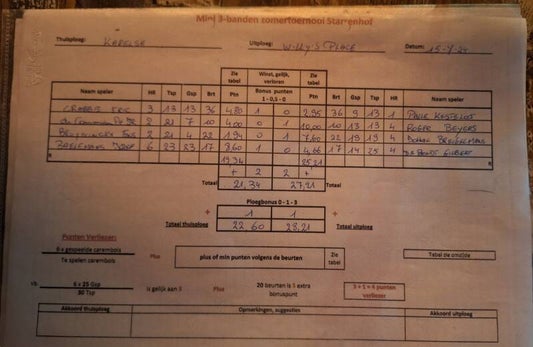 Mini 3-banden zomertoernooi Starrenhof
Thuisploeg: KAPELSE Uitploeg: WILLY'S PLACE Datum: 15-7-24
Zie tabel Winst, gelijk, verloren Zie tabel
Naam speler HR Tsp Gsp Brt Ptn Bonus punten 1 - 0,5 - 0 Ptn Brt Gsp Tsp HR Naam speler
ERIC 3 13 13 36 4,80 1 0 2,95 36 9 13 1
2 21 7 10 4,00 0 1 10,00 10 13 13 4 ROGER BEYERS
2 21 4 22 1,94 0 1 7,60 22 19 19 4
6 23 23 17 8,60 1 0 4,66 17 14 25 4 GILBERT
R 19,34 25,21 R
+ 2 2 +
Totaal 21,34 27,21 Totaal
Ploegbonus 0 - 1 - 3
+ 1 1 +
Totaal thuisploeg 22 60 28,21 Totaal uitploeg
Punten Verliezer:
6 x gespeelde carambols
Te spelen carambols
Plus plus of min punten volgens de beurten Zie tabel
Tabel zie omzijde
vb. 6 x 25 Gsp
30 Tsp
is gelijk aan 5 Plus 20 beurten is 1 extra bonuspunt
Akkoord thuisploeg Opmerkingen, suggesties Akkoord uitploeg